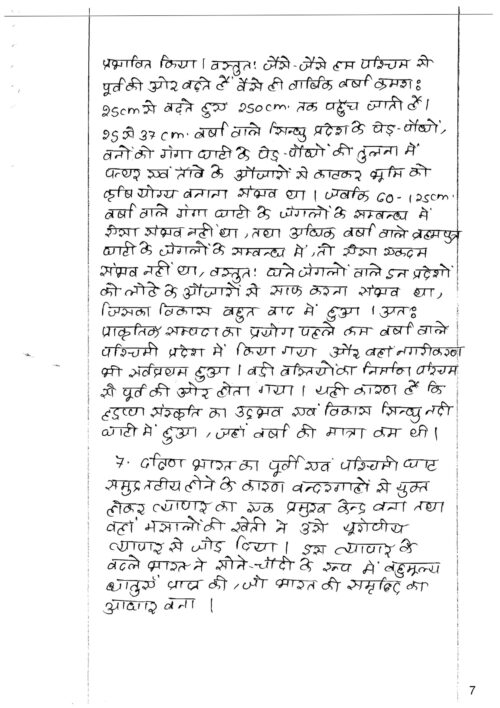 प्रभावित किया। वस्तुतः जैसे-जैसे हम पश्चिम से
पूर्व की ओर बढ़ते हैं वैसे ही वार्षिक वर्षा क्रमशः
25cm से बढ़ते हुए 250cm. तक पहुंच जाती है।
25 से 37 cm. वर्षा वाले सिन्धु प्रदेश के पेड़-पौधों,
वनों को गंगा घाटी के पेड़-पौधों की तुलना में
पत्थर एवं तांबे के औजारों से काटकर भूमि को
कृषि योग्य बनाना संभव था। जबकि 60-125cm.
वर्षा वाले गंगा घाटी के जंगलों के सम्बन्ध में
ऐसा संभव नहीं था, तथा अधिक वर्षा वाले ब्रह्मपुत्र
घाटी के जंगलों के सम्बन्ध में, तो ऐसा एकदम
संभव नहीं था, वस्तुतः घने जंगलों वाले इन प्रदेशों
को लोहे के औजारों से साफ करना संभव था,
जिसका विकास बहुत बाद में हुआ। अतः
प्राकृतिक सम्पदा का प्रयोग पहले कम वर्षा वाले
पश्चिमी प्रदेश में किया गया और वहां नगरीकरण
भी सर्वप्रथम हुआ। बड़ी बस्तियों का निर्माण पश्चिम
से पूर्व की ओर होता गया। यही कारण है कि
हड़प्पा संस्कृति का उद्भव एवं विकास सिन्धु नदी
घाटी में हुआ, जहां वर्षा की मात्रा कम थी।
7. दक्षिण भारत का पूर्वी एवं पश्चिमी घाट
समुद्र तटीय होने के कारण बन्दरगाहों से युक्त
होकर व्यापार का एक प्रमुख केन्द्र बना तथा
वहां मसालों की खेती ने उसे यूरोपीय
व्यापार से जोड़ दिया। इस व्यापार के
बदले भारत ने सोने-चांदी के रूप में बहुमूल्य
धातुएं प्राप्त की, जो भारत की समृद्धि का
आधार बना।
7